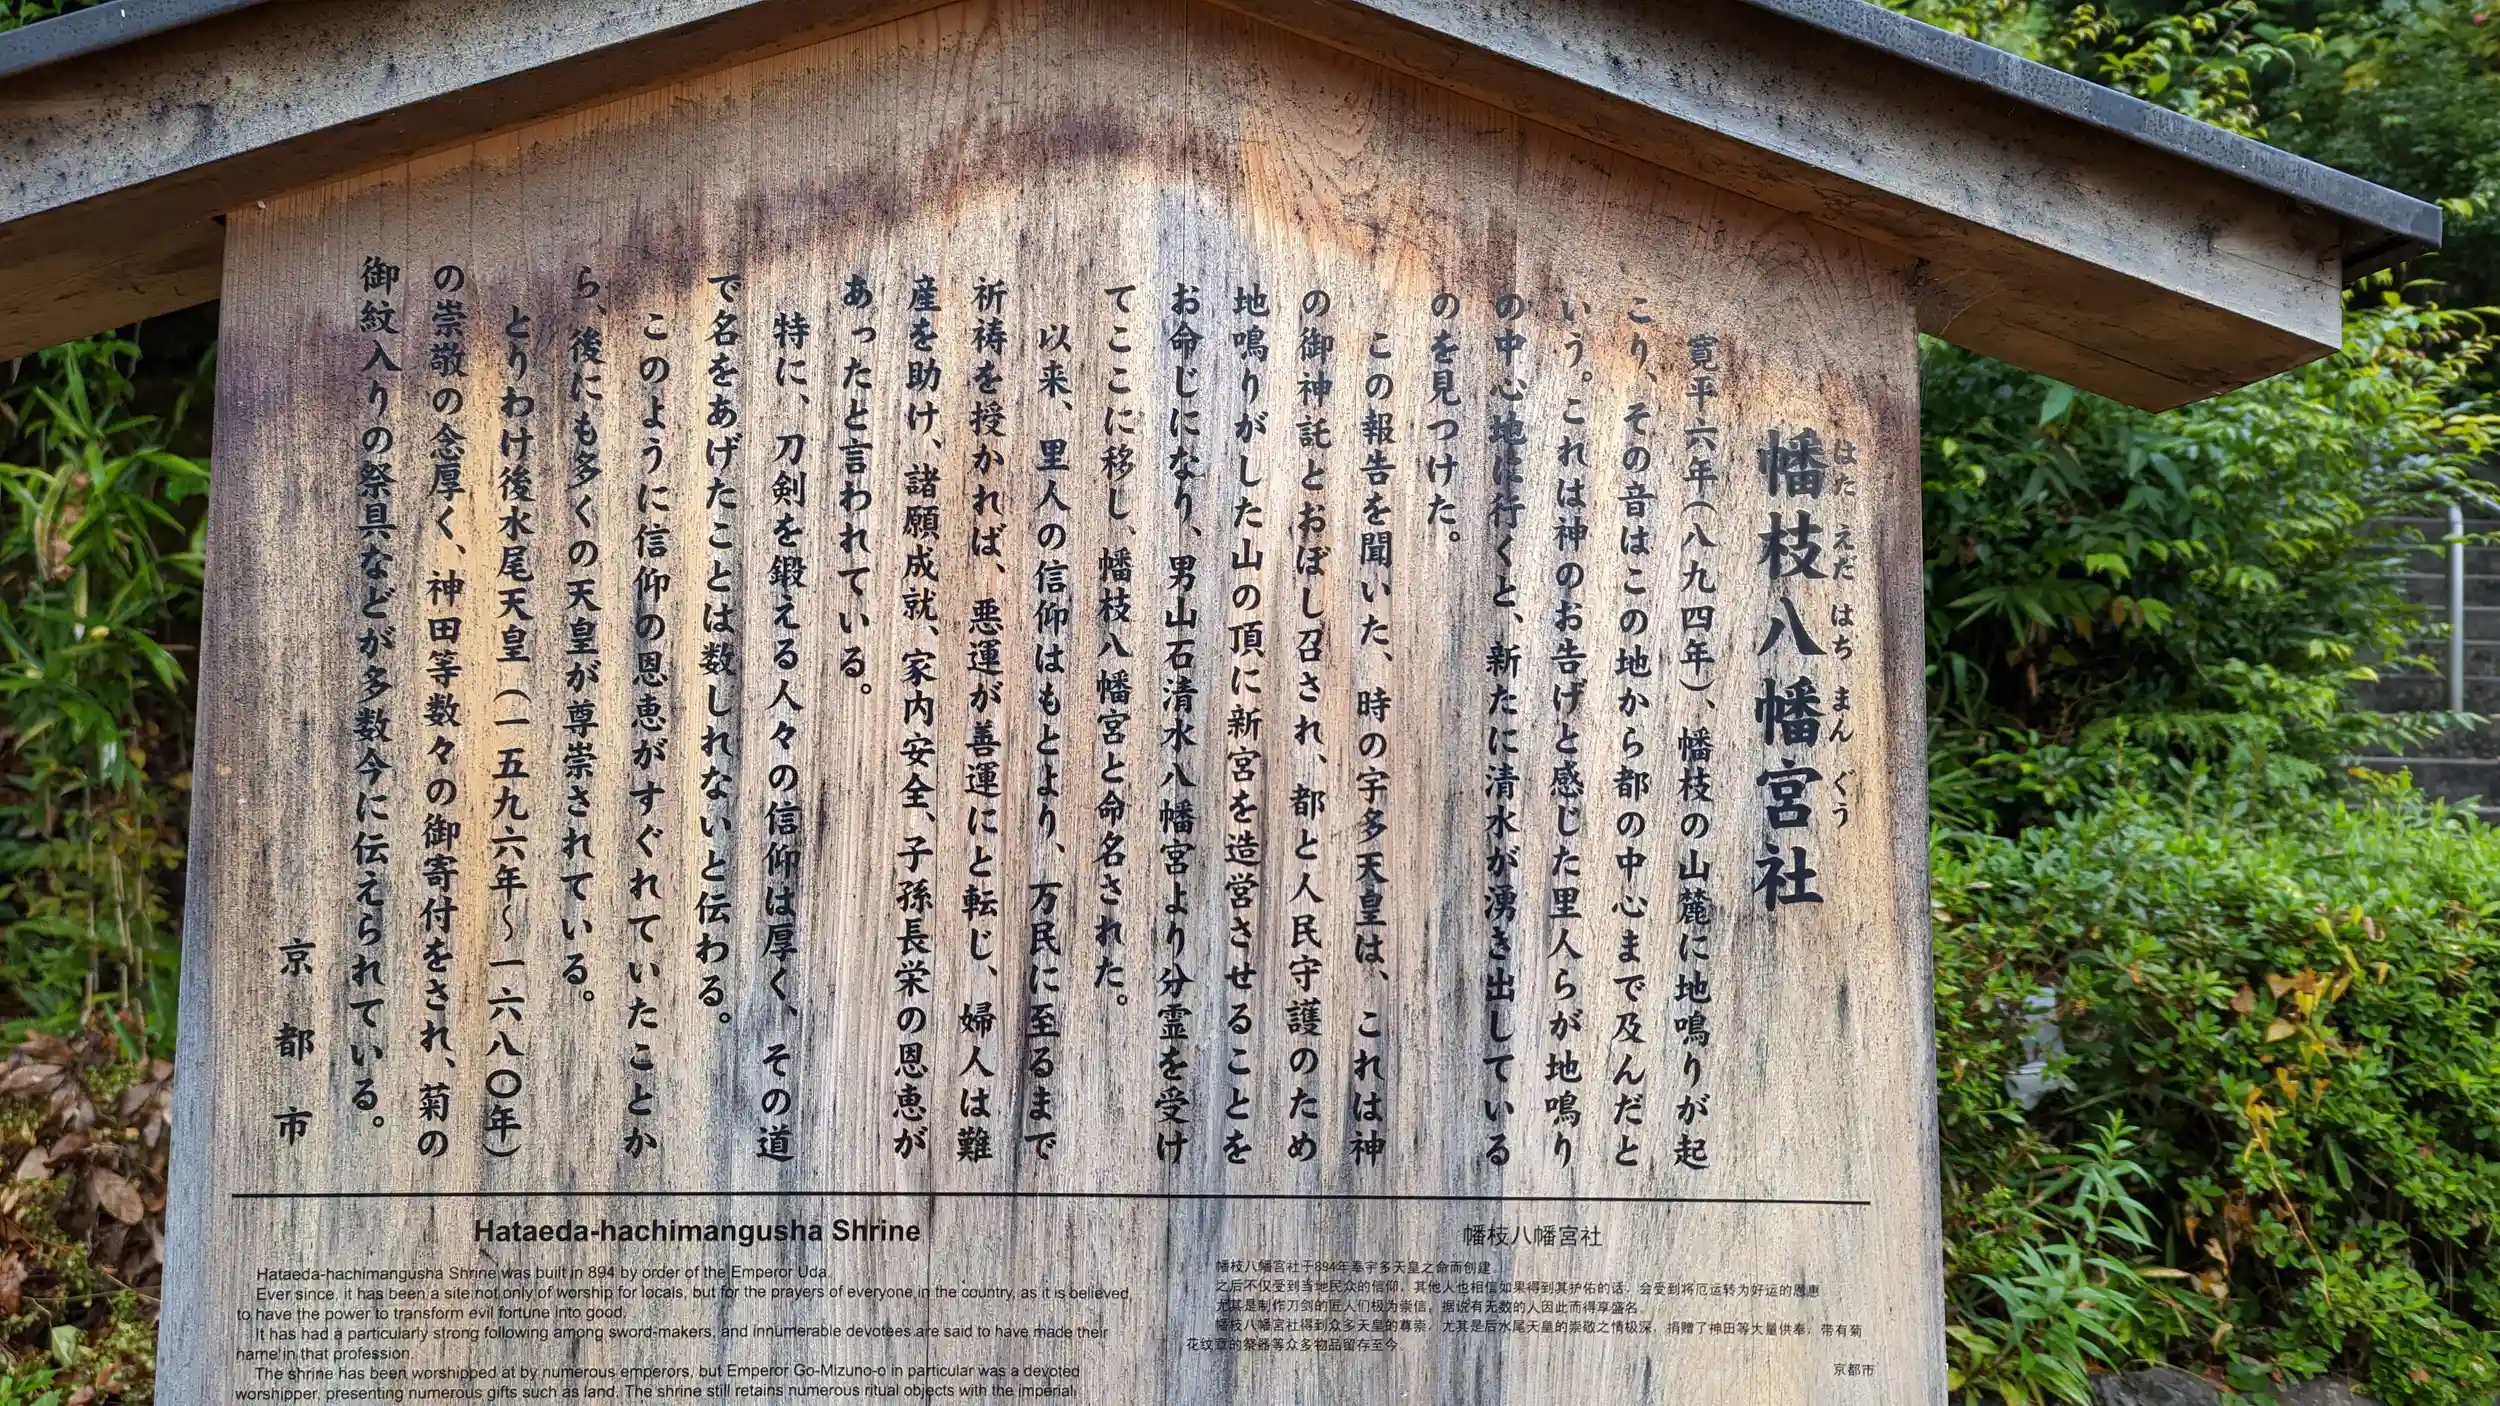 幡枝八幡宮社
はた えだ はち まん ぐう
寛平六年(八九四年)、幡枝の山麓に地鳴りが起
こり、その音はこの地から都の中心まで及んだと
いう。これは神のお告げと感じた里人らが地鳴り
の中心地に行くと、新たに清水が湧き出している
のを見つけた。
この報告を聞いた、時の宇多天皇は、これは神
の御神託とおぼし召され、都と人民守護のため
地鳴りがした山の頂に新宮を造営させることを
お命じになり、男山石清水八幡宮より分霊を受け
てここに移し、幡枝八幡宮と命名された。
以来、里人の信仰はもとより、万民に至るまで
祈祷を授かれば、悪運が善運にと転じ、婦人は難
産を助け、諸願成就、家内安全、子孫長栄の恩恵が
あったと言われている。
特に、刀剣を鍛える人々の信仰は厚く、その道
で名をあげたことは数しれないと伝わる。
このように信仰の恩恵がすぐれていたことか
ら、後にも多くの天皇が尊崇されている。
とりわけ後水尾天皇(一五九六年~一六八〇年)
の崇敬の念厚く、神田等数々の御寄付をされ、菊の
御紋入りの祭具などが多数今に伝えられている。
京都市
Hataeda-hachimangusha Shrine
Hataeda-hachimangusha Shrine was built in 894 by order of the Emperor Uda.
Ever since, it has been a site not only of worship for locals, but for the prayers of everyone in the country, as it is believed
to have the power to transform evil fortune into good.
It has had a particularly strong following among sword-makers, and innumerable devotees are said to have made their
name in that profession.
The shrine has been worshipped at by numerous emperors, but Emperor Go-Mizuno-o in particular was a devoted
worshipper, presenting numerous gifts such as land. The shrine still retains numerous ritual objects with the imperial
幡枝八幡宮社
幡枝八幡宮社于894年奉宇多天皇之命而创建。
之后不仅受到当地民众的信仰，其他人也相信如果得到其护佑的话，会受到将厄运转为好运的恩惠
尤其是制作刀剑的匠人们极为崇信，据说有无数的人因此而得享盛名。
幡枝八幡宮社得到众多天皇的尊崇，尤其是后水尾天皇的崇敬之情极深，捐赠了神田等大量供奉，带有菊
花纹章的祭器等众多物品留存至今。
京都市